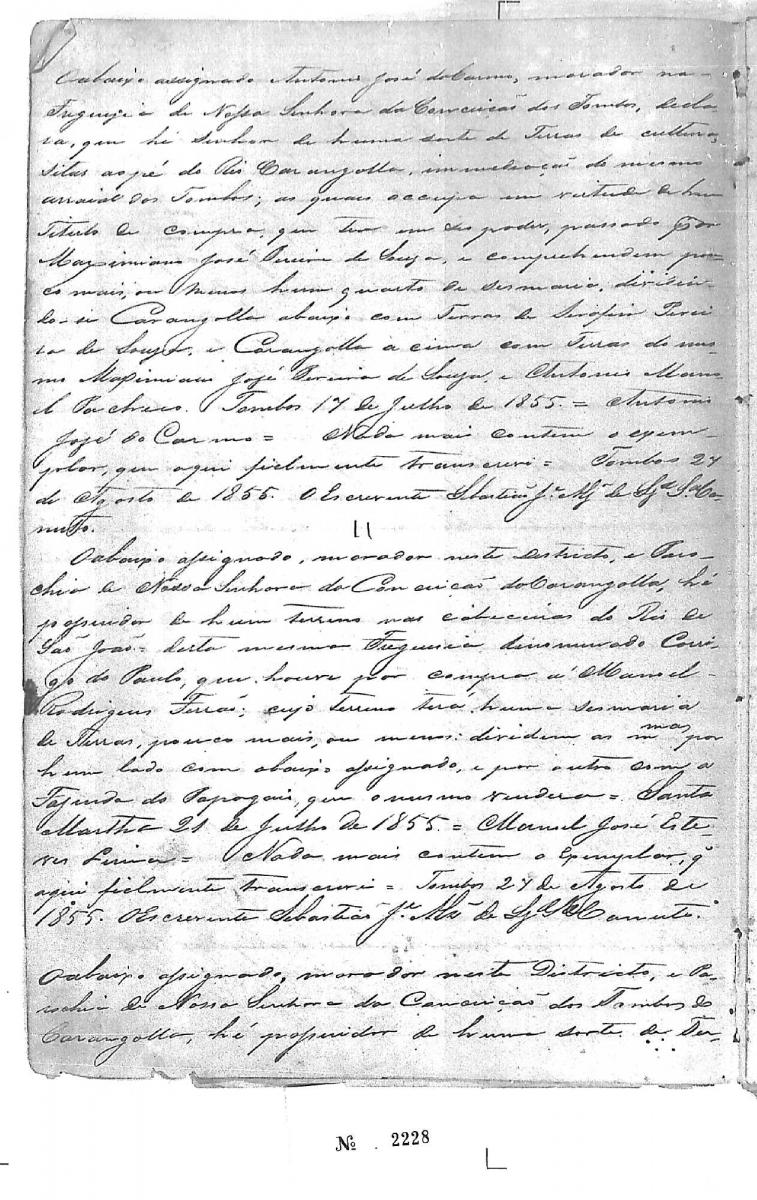 O abaixo assignado Antonio José do Carmo, morador na
Freguezia de Nossa Senhora da Conceição dos Tombos, decla-
ra, que hé Senhor de huma sorte de Terras de cultura,
sitas ao pé do Rio Carangolla, immediação do mesmo
arraial dos Tombos; as quais occupa em virtude de hum
Titulo de compra, que tem em seo poder, passado por
Maximiano José Pereira de Souza, e comprehendem pou-
co mais, ou menos hum quarto de sesmaria, dividin-
do-se Carangolla abaixo com Terras de Serafim Perei-
ra de Souza, e Carangolla à cima com Terras do mes-
mo Maximiano José Pereira de Souza, e Antonio Mano-
el Pacheco. Tombos 17 de Julho de 1855. = Antonio
José do Carmo = Nada mais contem o exem-
plar, que aqui fielmente transcrevi = Tombos 27
de Agosto de 1855. O Escrevente Sebastião J.e
de Ca-
nuto.
11
O abaixo assignado, morador neste Districto, e Paro-
chia de Nossa Senhora da Conceição do Carangolla, hé
possuidor de hum terreno nas cabeceiras do Rio de
São João = desta mesma Freguezia, denominado Corri-
go do Paulo, que houve por compra a' Manoel
Rodrigues Ferras; cujo terreno terá huma sesmaria
de Terras, pouco mais, ou menos: dividem as mmas por
hum lado com abaixo assignado, e por outro com a
Fazenda do Papagaio, que o mesmo vendera = Santa
Martha 21 de Julho de 1855. = Manoel José Este-
ves Lima = Nada mais contem o Exemplar, q'
aqui fielmente transcrevi = Tombos 27 de Agosto de
1855. O Escrevente Sebastião J.e de Canuto.
O abaixo assignado, morador neste Districto, e Pa-
rochia de Nossa Senhora da Conceição dos Tombos do
Carangolla, hé possuidor de huma sorte de Ter-
Nº 2228